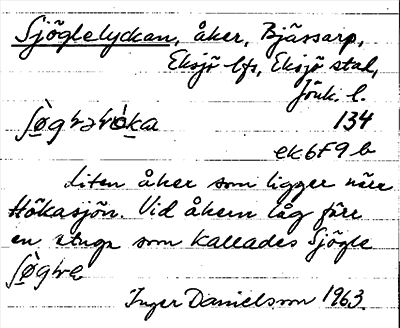 Sjöglelyckan, åker, Bjässarp,
Eksjö lfs, Eksjö stal,
Jönk. l.
134
ek6F9b
Liten åker som ligger nära
Hökasjön. Vid åkern låg förr
en stuga som kallades Sjögle
Inger Danielsson 1963.